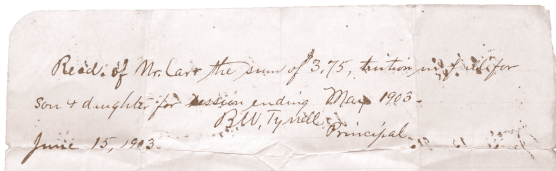 Recd. of Mr. Carr the sum of 3.75, tuition in full for
son & daughter for session ending May 1903.
B.W. Tyrrell
Principal.
June 15, 1903.